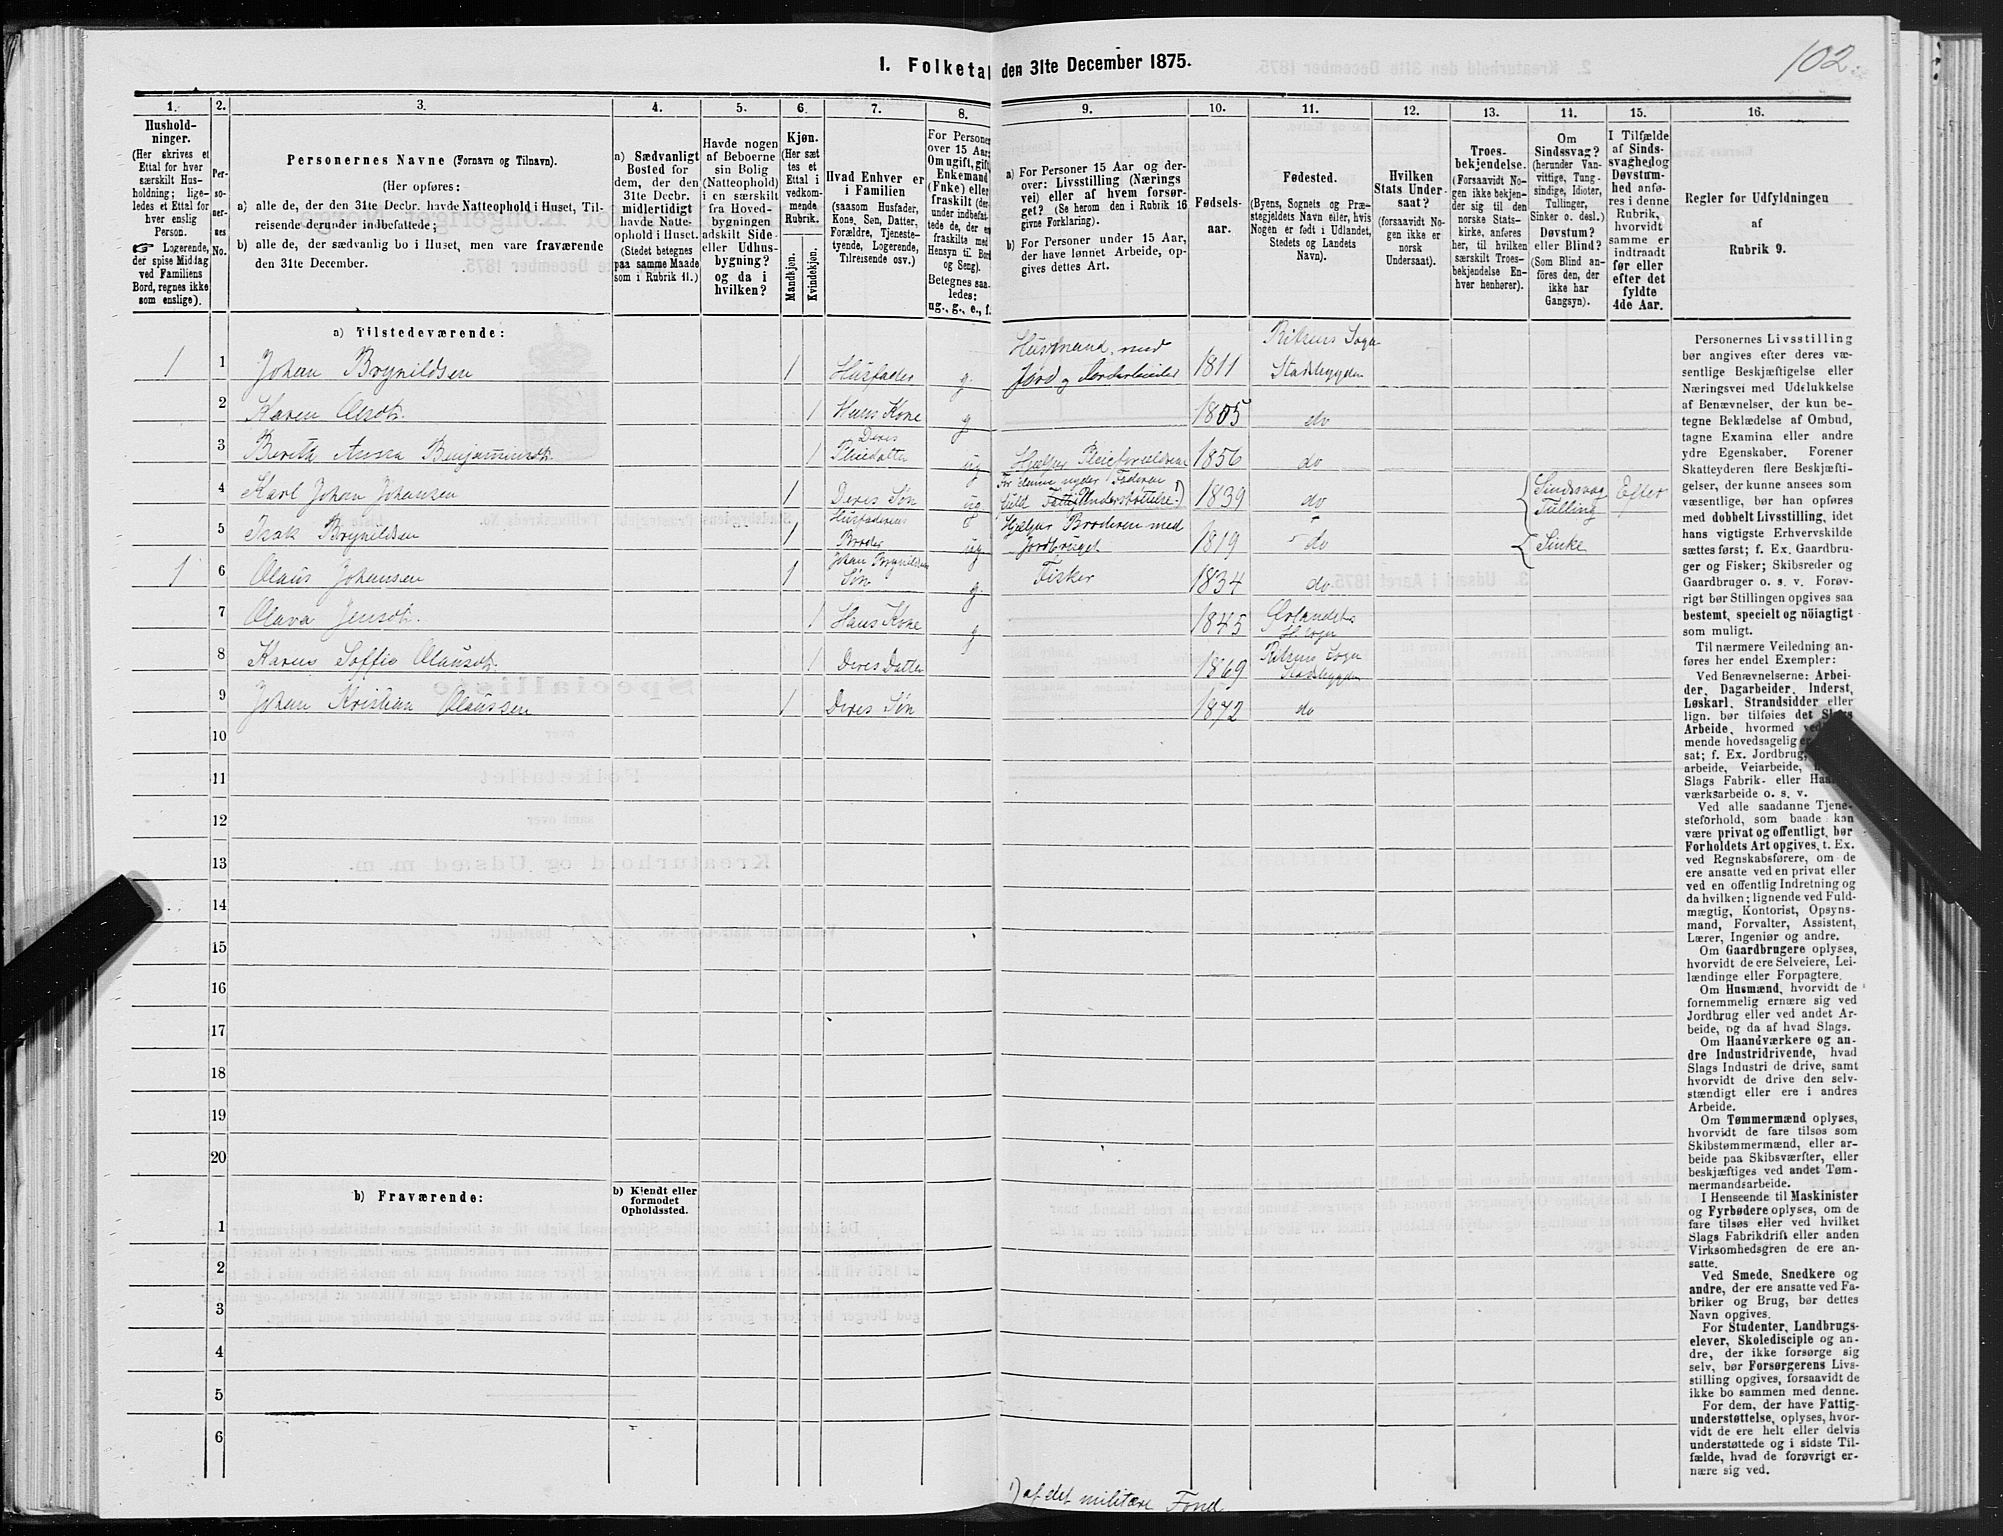 102.
I. Folketal den 31te December 1875.
1. 2. 3. 4. 5. 6. 7. 8. 9. 10. 11. 12. 13. 14. 15. 16.
Hushold-
ninger.
(Her skrives et
Ettal for hver
særskilt Hus-
holdning; lige-
ledes et Ettal for
hver enslig
Person.
☞ Logerende,
der spise Middag
ved Familiens
Bord, regnes ikke
som enslige).
Per-
so-
ner-
nes
No.
Personernes Navne (Fornavn og Tilnavn).
(Her opføres:
a) alle de, der den 31te Decbr. havde Natteophold i Huset, Til-
reisende derunder indbefattede;
b) alle de, der sædvanlig bo i Huset, men vare fraværende
den 31te December.
a) Sædvanligt
Bosted for
dem, der den
31te Decbr.
midlertidigt
havde Natte-
ophold i Huset.
(Stedet betegnes
paa samme Maade
som i Rubrik 11.)
Havde nogen
af Beboerne
sin Bolig
(Natteophold)
i en særskilt
fra Hoved-
bygningen
adskilt Side-
eller Udhus-
bygning?
og da i
hvilken?
Kjøn.
(Her sæt
tes et
Ettal i
vedkom-
mende
Rubrik.
Mandkjøn.
Kvindekjøn.
Hvad Enhver er
i Familien
(saasom Husfader,
Kone, Søn, Datter,
Forældre, Tjeneste-
tyende, Logerende,
Tilreisende osv.)
For Personer
over 15 Aar:
Om ugift, gift,
Enkemand
(Fnke) eller
fraskilt (der-
under indbefat-
tede de, der er
fraskilte med
Hensyn til Bord
og Seng).
Betegnes saa-
ledes:
ug., g., e., f.
a) For Personer 15 Aar og der-
over: Livsstilling (Nærings
vei) eller af hvem forsør-
get? (Se herom den i Rubrik 16
givne Forklaring).
b) For Personer under 15 Aar,
der have lønnet Arbeide, op-
gives dettes Art.
Fødsels-
aar.
Fødested.
(Byens, Sognets og Præ-
stegjeldets Navn eller, hvis
Nogen er født i Udlandet,
Stedets og Landets
Navn).
Hvilken
Stats Under-
saat?
(forsaavidt No-
gen ikke er
norsk
Undersaat).
Troes-
bekjendelse.
(Forsaavidt No-
gen ikke bekjen-
der sig til den
norske Stats-
kirke, anføres
her, til hvilken
særskilt Troes-
bekjendelse En-
hver henhører).
Om
Sindssvag?
(herunder Van-
vittige, Tung-
sindige, Idioter,
Tullinger,
Sinker o. desl.)
Døvstum?
eller Blind?
(Som Blind an-
føres den, der
ikke har
Gangsyn).
I Tilfælde
af Sinds-
svaghed og
Døvstum-
hed anfø-
res i denne
Rubrik,
hvorvidt
samme er
indtraadt
før eller
efter det
fyldte
4de Aar.
Regler for Udfyldningen
af
Rubrik 9.
a) Tilstedeværende:
1 1 Johan Brynildsen 1 Husfader g. Husmand med Jord og Jordarbeider 1811 Ritsens Sogn Stadsbygden
2 Karen Olsdtr. 1 Hans Kone g 1805 do
3 Berith Anna Benjaminsdtr. 1 Deres Pleiedatter ug Hjælper Pleieforældrene 1856 do
4 Karl Johan Johansen 1 Deres Søn ug For denne nyder Faderen fuld Fattig Understøttelse 1) 1839 do Sindssvag Tulling Efter
5 Isak Brynildsen 1 Husfaderens Broder ug Hjælper Broderen med Jordbruget 1819 do Sinke
1 6 Olaus Johansen 1 Johan Brynildsens Søn g. Fisker 1834 do
7 Olava Jensdtr. 1 Hans Kone g 1845 Ørlandets H.sogn
8 Karen Soffie Olausdtr. 1 Deres Datter 1869 Ritsens Sogn Stadsbygden
9 Johan Kristian Olaussen 1 Deres Søn 1872 do
10
11
12
13
14
15
16
17
18
19
20
b) Fraværende:
b) Kjendt eller
formodet
Opholdssted.
1
2
3
4
5
6
Personernes Livsstilling
bør angives efter deres væ-
sentlige Beskjæftigelse eller
Næringsvei med Udelukkelse
af Benævnelser, der kun be-
tegne Beklædelse af Ombud,
tagne Examina eller andre
ydre Egenskaber. Forener
Skatteyderen flere Beskjæfti-
gelser, der kunne ansees som
væsentlige, bør han opføres
med dobbelt Livsstilling, idet
hans vigtigste Erhvervskilde
sættes først; f. Ex. Gaardbru-
ger og Fisker; Skibsreder og
Gaardbruger o. s. v. Forøv-
rigt bør Stillingen opgives saa
bestemt, specielt og nöiagtigt
som muligt.
Til nærmere Veiledning an-
føres her endel Exempler:
Ved Benævnelserne: Arbei-
der, Dagarbeider, Inderst,
Løskarl, Strandsidder eller
lign. bør tilføies det Slags
Arbeide, hvormed ved-
mende hovedsagelig er
sat; f. Ex. Jordbrug,
arbeide, Veiarbeide,
Slags Fabrik- eller Haand-
værksarbeide o. s. v.
Ved alle saadanne Tjene-
steforhold, som baade kan
være privat og offentligt, bør
Forholdets Art opgives, t. Ex.
ved Regnskabsførere, om de
ere ansatte ved en privat eller
ved en offentlig Indretning og
da hvilken; lignende ved Fuld-
mægtig, Kontorist, Opsyns-
mand, Forvalter, Assistent,
Lærer, Ingeniør og andre.
Om Gaardbrugere oplyses,
hvorvidt de ere Selveiere, Lei-
lændinge eller Forpagtere.
Om Husmænd, hvorvidt de
fornemmelig ernære sig ved
Jordbrug eller ved andet Ar-
beide, og da af hvad Slags.
Om Haandværkere og an-
dre Industridrivende, hvad
Slags Industri de drive, samt
hvorvidt de drive den selv-
stændigt eller ere i andres
Arbeide.
Om Tømmermænd oplyses,
hvorvidt de fare tilsøs som
Skibstømmermænd, eller ar-
beide paa Skibsværfter, eller
beskjæftiges ved andet Tøm-
mermandsarbeide.
I Henseende til Maskinister
og Fyrbødere oplyses, om de
fare tilsøs eller ved hvilket
Slags Fabrikdrift eller anden
Virksomhedsgren de ere an-
satte.
Ved Smede, Snedkere og
andre, der ere ansatte ved Fa-
briker og Brug, bør dettes
Navn opgives.
For Studenter, Landbrugs-
elever, Skoledisciple og an-
dre, der ikke forsørge sig
selv, bør Forsørgerens Livs-
stilling opgives, forsaavidt de
ikke bo sammen med denne.
For dem, der have Fattig-
understøttelse, oplyses, hvor-
vidt de ere helt eller delvis
understøttede og i sidste Til-
fælde, hvad de forøvrigt er-
nære sig ved.
1) af det militære Fond